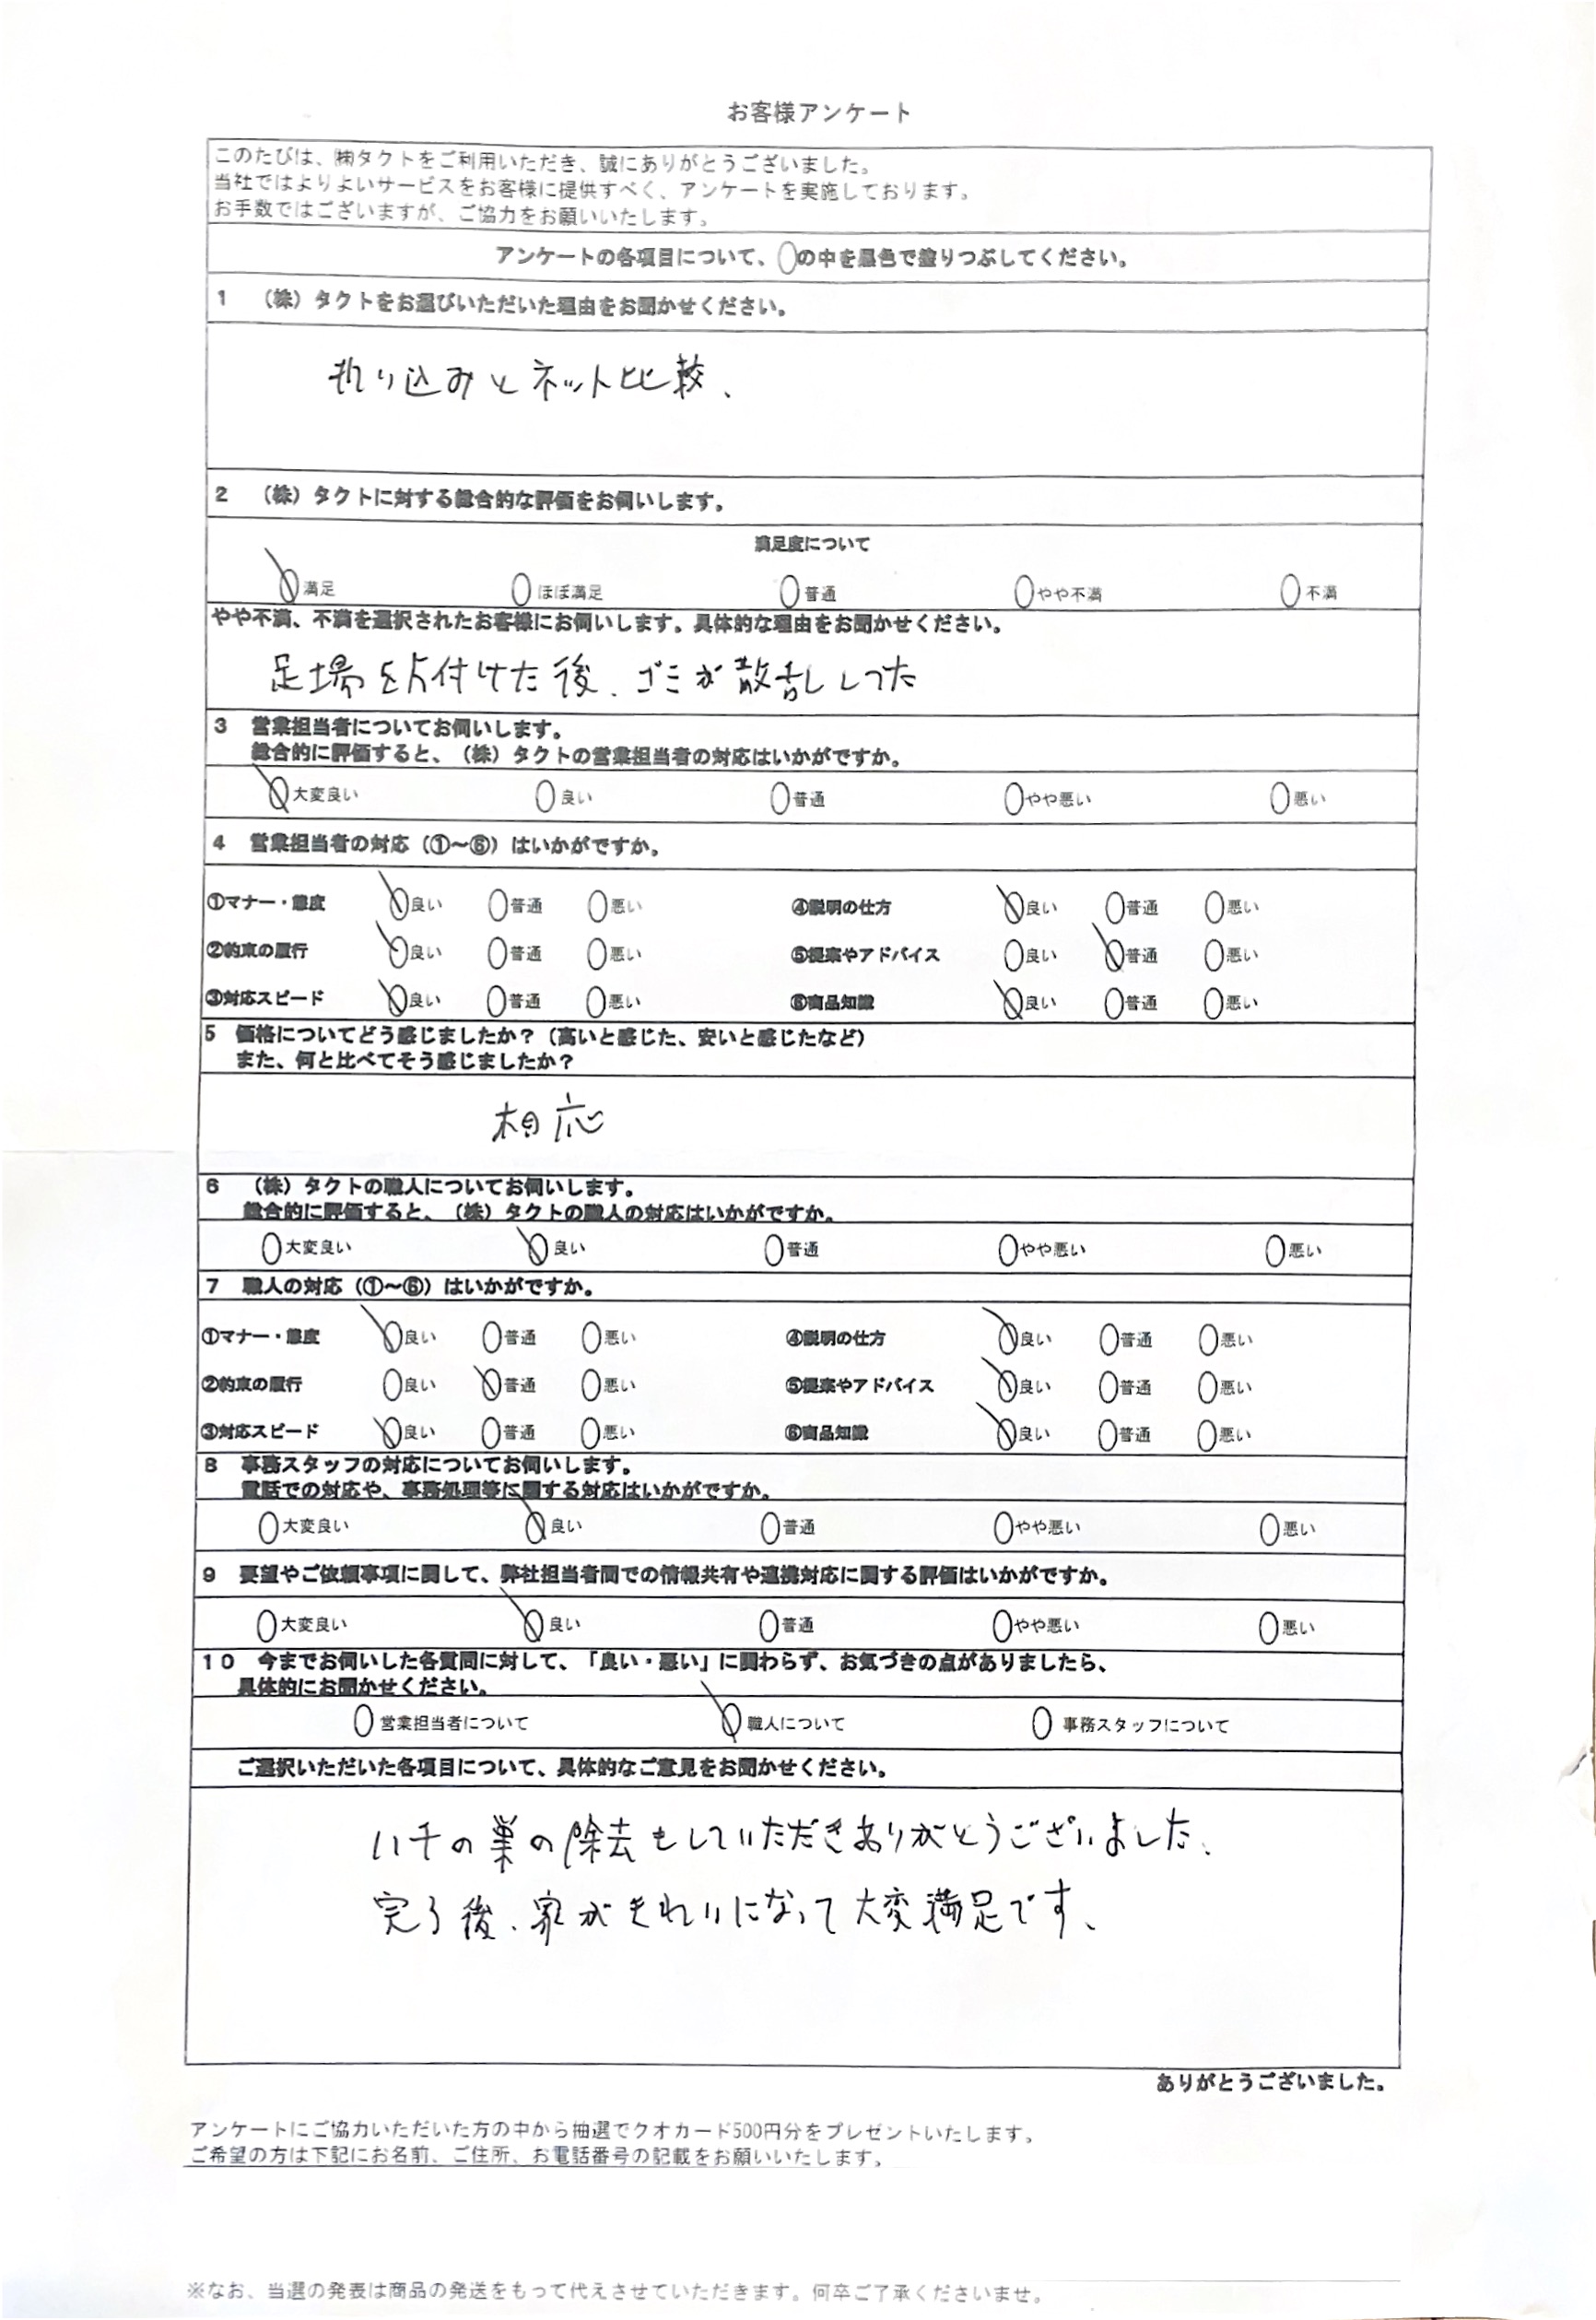 お客様アンケート
このたびは、㈱タクトをご利用いただき、誠にありがとうございました。
当社ではよりよいサービスをお客様に提供すべく、アンケートを実施しております。
お手数ではございますが、ご協力をお願いいたします。
アンケートの各項目について、○の中を黒色で塗りつぶしてください。
1 （株）タクトをお選びいただいた理由をお聞かせください。
折り込みとネット比較、
2 （株）タクトに対する総合的な評価をお伺いします。
満足度について
満足 ほぼ満足 普通 やや不満 不満
やや不満、不満を選択されたお客様にお伺いします。具体的な理由をお聞かせください。
足場を片付けた後、ゴミが散乱してた
3 営業担当者についてお伺いします。
総合的に評価すると、（株）タクトの営業担当者の対応はいかがですか。
大変良い 良い 普通 やや悪い 悪い
4 営業担当者の対応（①～⑥）はいかがですか。
①マナー・態度 良い 普通 悪い ④説明の仕方 良い 普通 悪い
②約束の履行 良い 普通 悪い ⑤提案やアドバイス 良い 普通 悪い
③対応スピード 良い 普通 悪い ⑥商品知識 良い 普通 悪い
5 価格についてどう感じましたか？（高いと感じた、安いと感じたなど）
また、何と比べてそう感じましたか？
相応
6 （株）タクトの職人についてお伺いします。
総合的に評価すると、（株）タクトの職人の対応はいかがですか。
大変良い 良い 普通 やや悪い 悪い
7 職人の対応（①～⑥）はいかがですか。
①マナー・態度 良い 普通 悪い ④説明の仕方 良い 普通 悪い
②約束の履行 良い 普通 悪い ⑤提案やアドバイス 良い 普通 悪い
③対応スピード 良い 普通 悪い ⑥商品知識 良い 普通 悪い
8 事務スタッフの対応についてお伺いします。
電話での対応や、事務処理等に関する対応はいかがですか。
大変良い 良い 普通 やや悪い 悪い
9 要望やご依頼事項に関して、弊社担当者間での情報共有や連携対応に関する評価はいかがですか。
大変良い 良い 普通 やや悪い 悪い
10 今までお伺いした各質問に対して、「良い・悪い」に関わらず、お気づきの点がありましたら、
具体的にお聞かせください。
営業担当者について 職人について 事務スタッフについて
ご選択いただいた各項目について、具体的なご意見をお聞かせください。
ハチの巣の除去もしていただきありがとうございました、
完了後、家がきれいになって大変満足です、
ありがとうございました。
アンケートにご協力いただいた方の中から抽選でクオカード500円分をプレゼントいたします。
ご希望の方は下記にお名前、ご住所、お電話番号の記載をお願いいたします。
※なお、当選の発表は商品の発送をもって代えさせていただきます。何卒ご了承くださいませ。